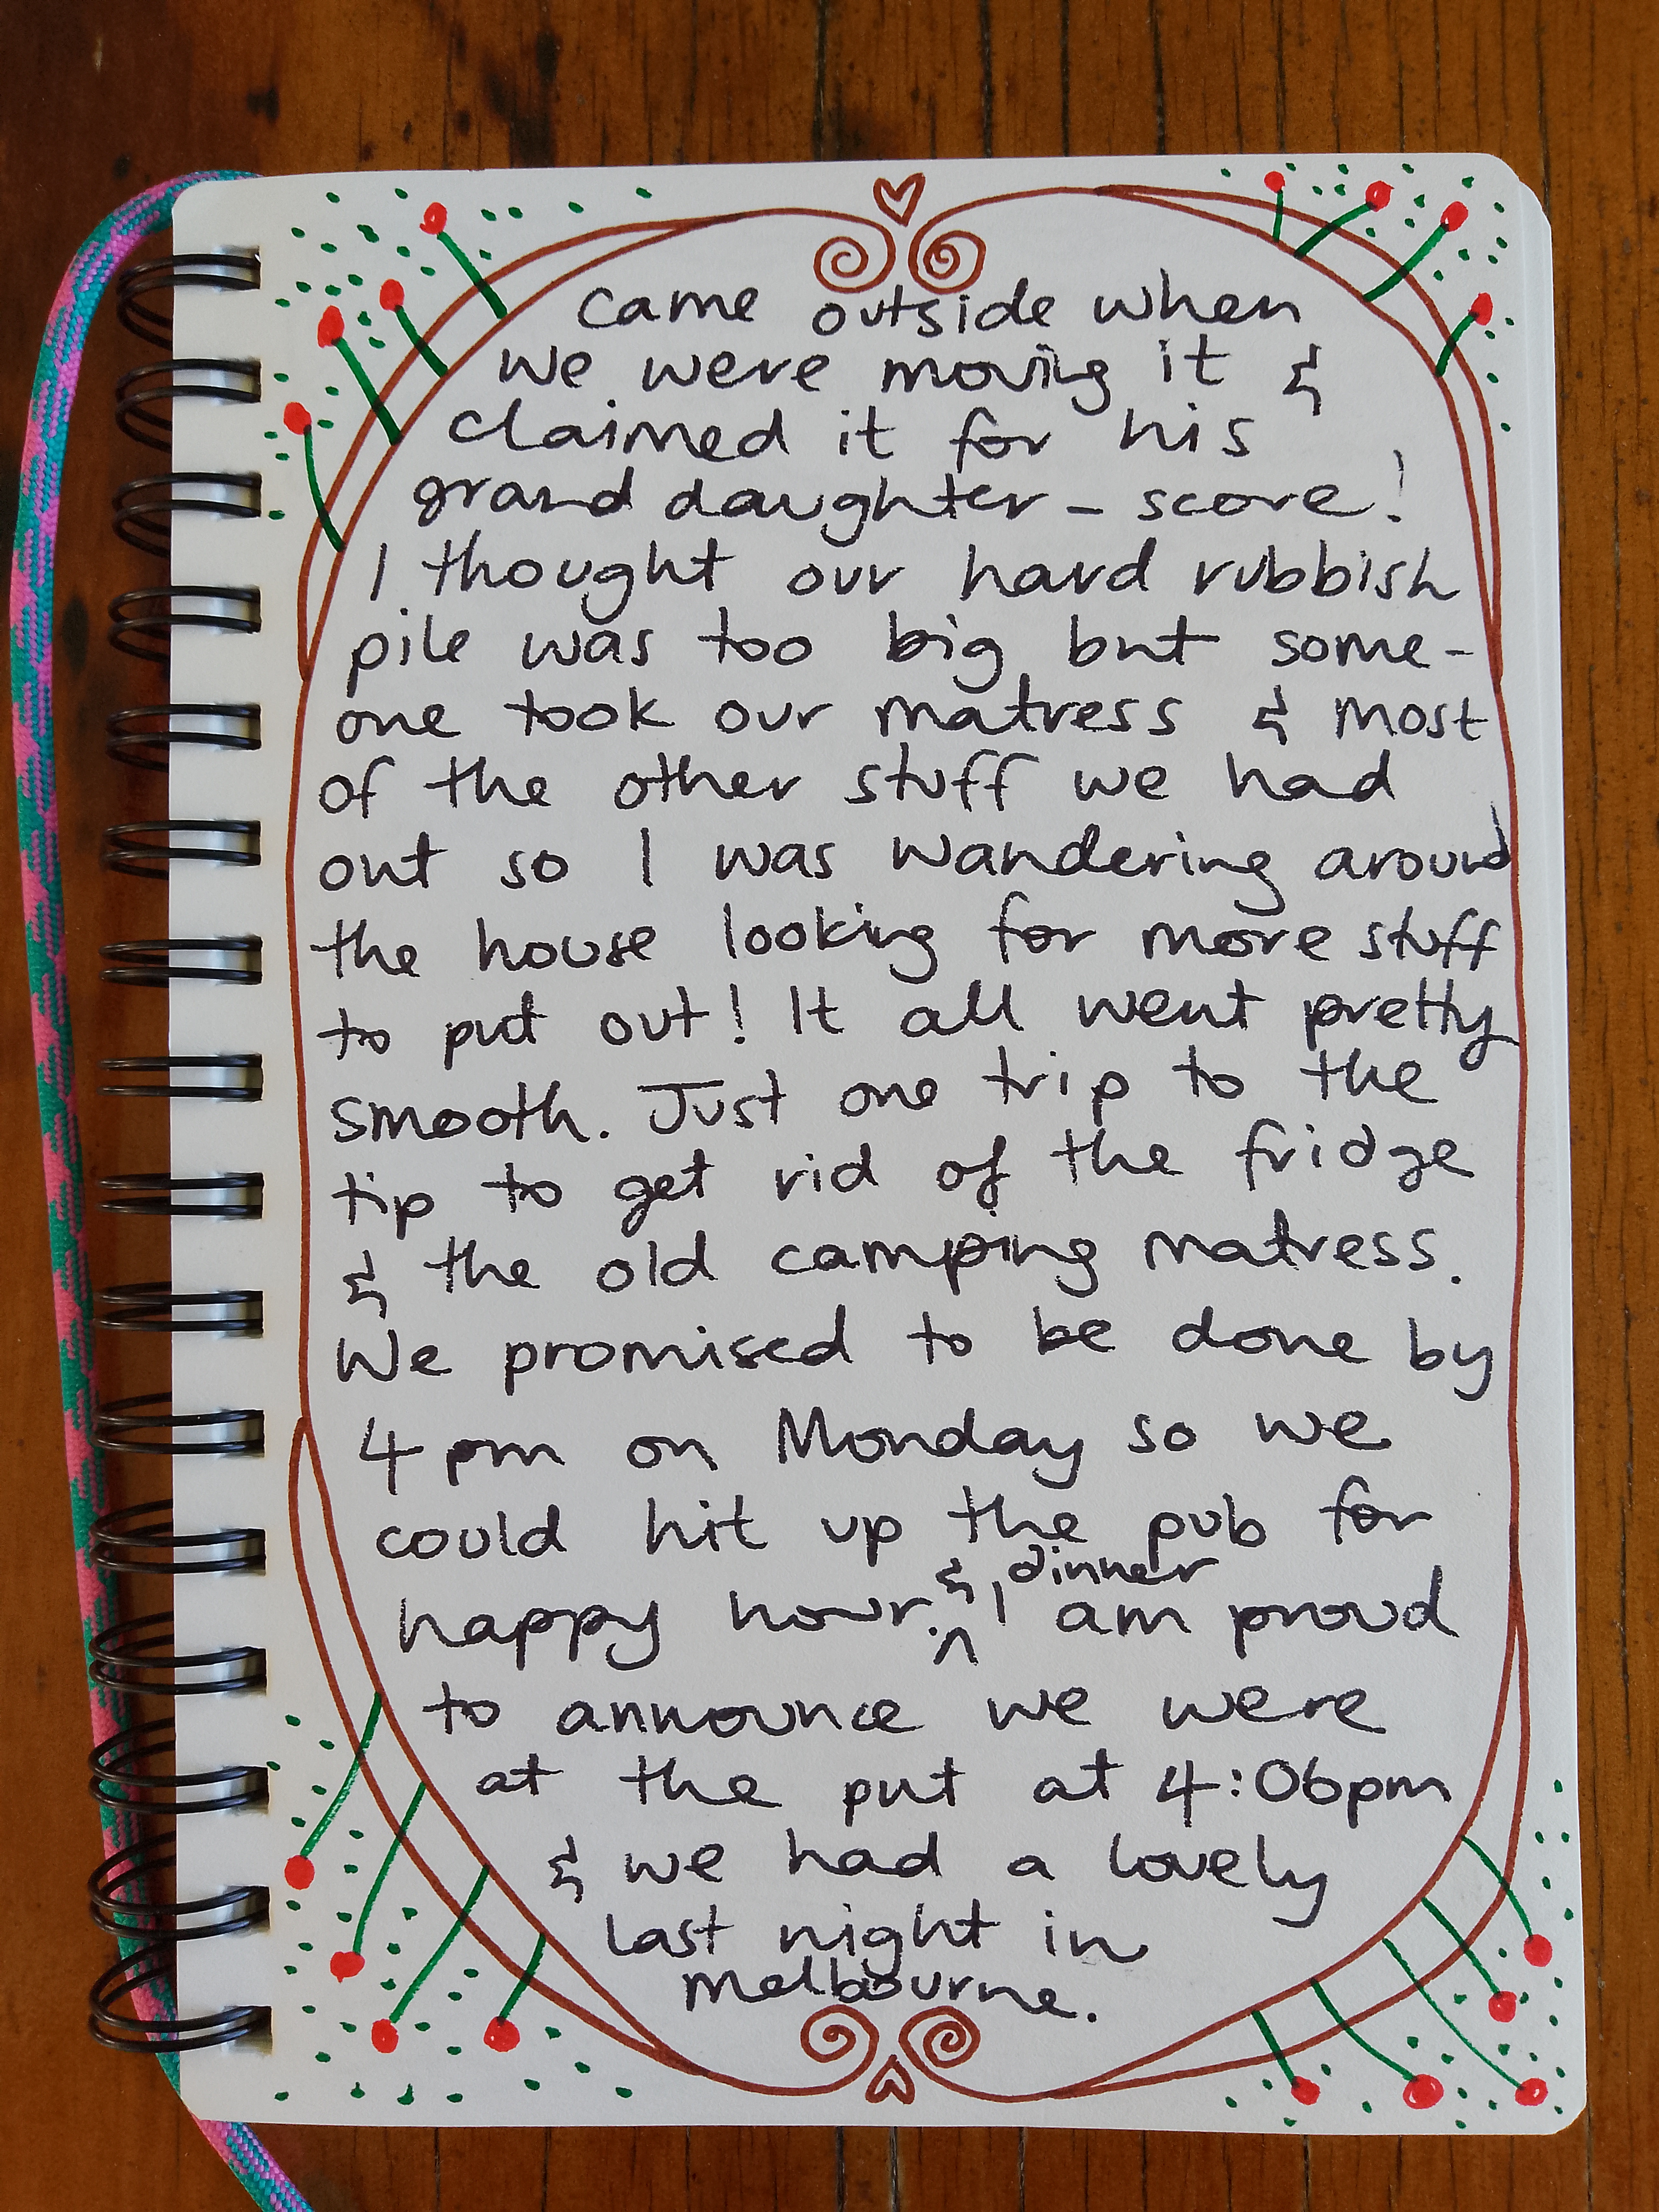 came outside when
we were moving it &
claimed it for his
grand daughter - score!
I thought our hard rubbish
pile was too big but some-
one took our matress & most
of the other stuff we had
out so I was wandering around
the house looking for more stuff
to put out! It all went pretty
smooth. Just one trip to the
tip to get rid of the fridge
& the old camping matress.
We promised to be done by
4pm on Monday so we
could hit up the pub for
happy hour. & dinner I am proud
to announce we were
at the put at 4:06pm
& we had a lovely
last night in
Melbourne.